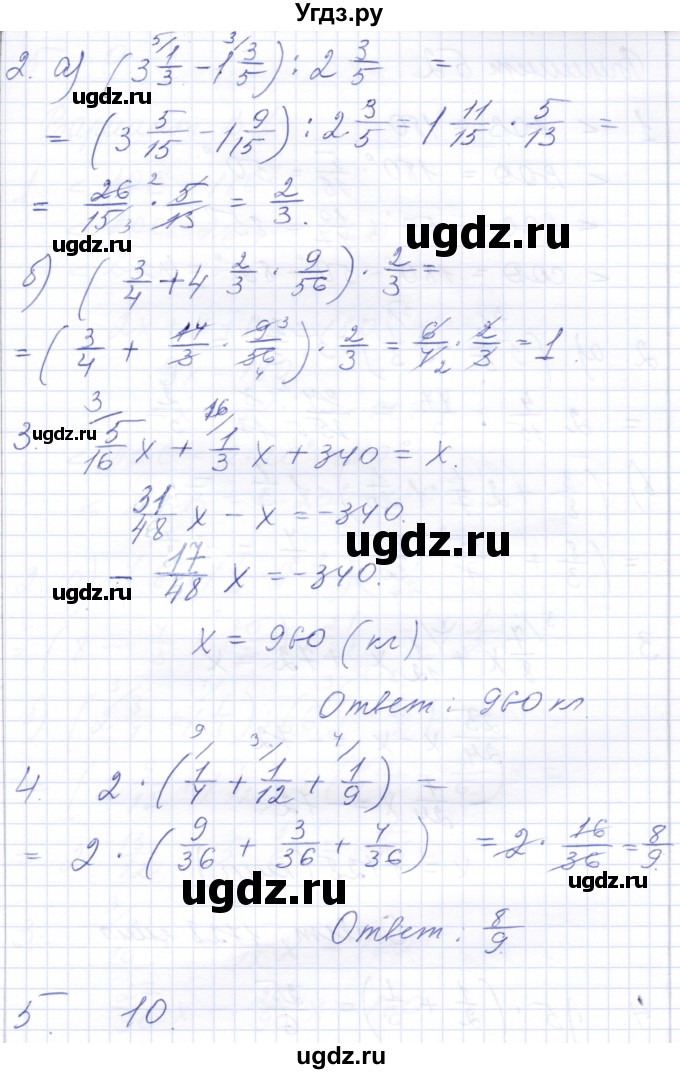 Угдз.ру
2. а) (3 5/ 1/3 − 1 3/ 3/5) : 2 3/5 =
ugdz.ru
= (3 5/15 − 1 9/15) : 2 3/5 = 1 11/15 · 5/13 =
= 26/15 3 · 2 5/13 = 2/3.
ugdz.ru
ugdz.ru
б) (3/4 + 4 2/3 · 9/56) · 2/3 =
= (3/4 + 14/3 · 9 3/56 4) · 2/3 = 6/4 2 · 2/3 = 1.
ugdz.ru
3. 3/ 5/16 x + 16/ 1/3 x + 340 = x.
31/48 x − x = −340.
ugdz.ru
− 17/48 x = −340.
ugdz.ru
x = 960 (кг)
Ответ: 960 кг.
4. 2 · (9/ 1/4 + 3/ 1/12 + 4/ 1/9) =
= 2 · (9/36 + 3/36 + 4/36) = 2 · 16/36 = 8/9.
ugdz.ru
ugdz.ru
Ответ: 8/9.
5. 10.
ugdz.ru